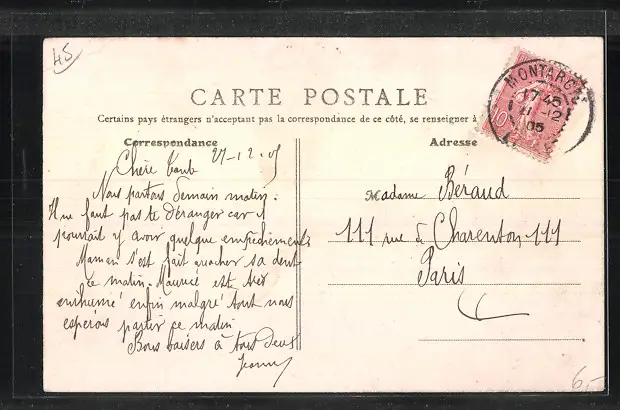 45
CARTE POSTALE
Certains pays étrangers n'acceptant pas la correspondance de ce côté, se renseigner à
Correspondance
Adresse
MONTARGIS
17 45
21 -12
05
10
Chère tante 27-12-05
Nous partons demain matin.
Il ne faut pas te déranger car il
pourrait y avoir quelque empêchement
Maman s'est fait arracher sa dent
ce matin. Maurice est très
enrhumé enfin malgré tout nous
espérons partir ce matin
Bons baisers à tous deux
Jeanne
Madame Béraud
111 rue de Charenton 111
Paris
6-